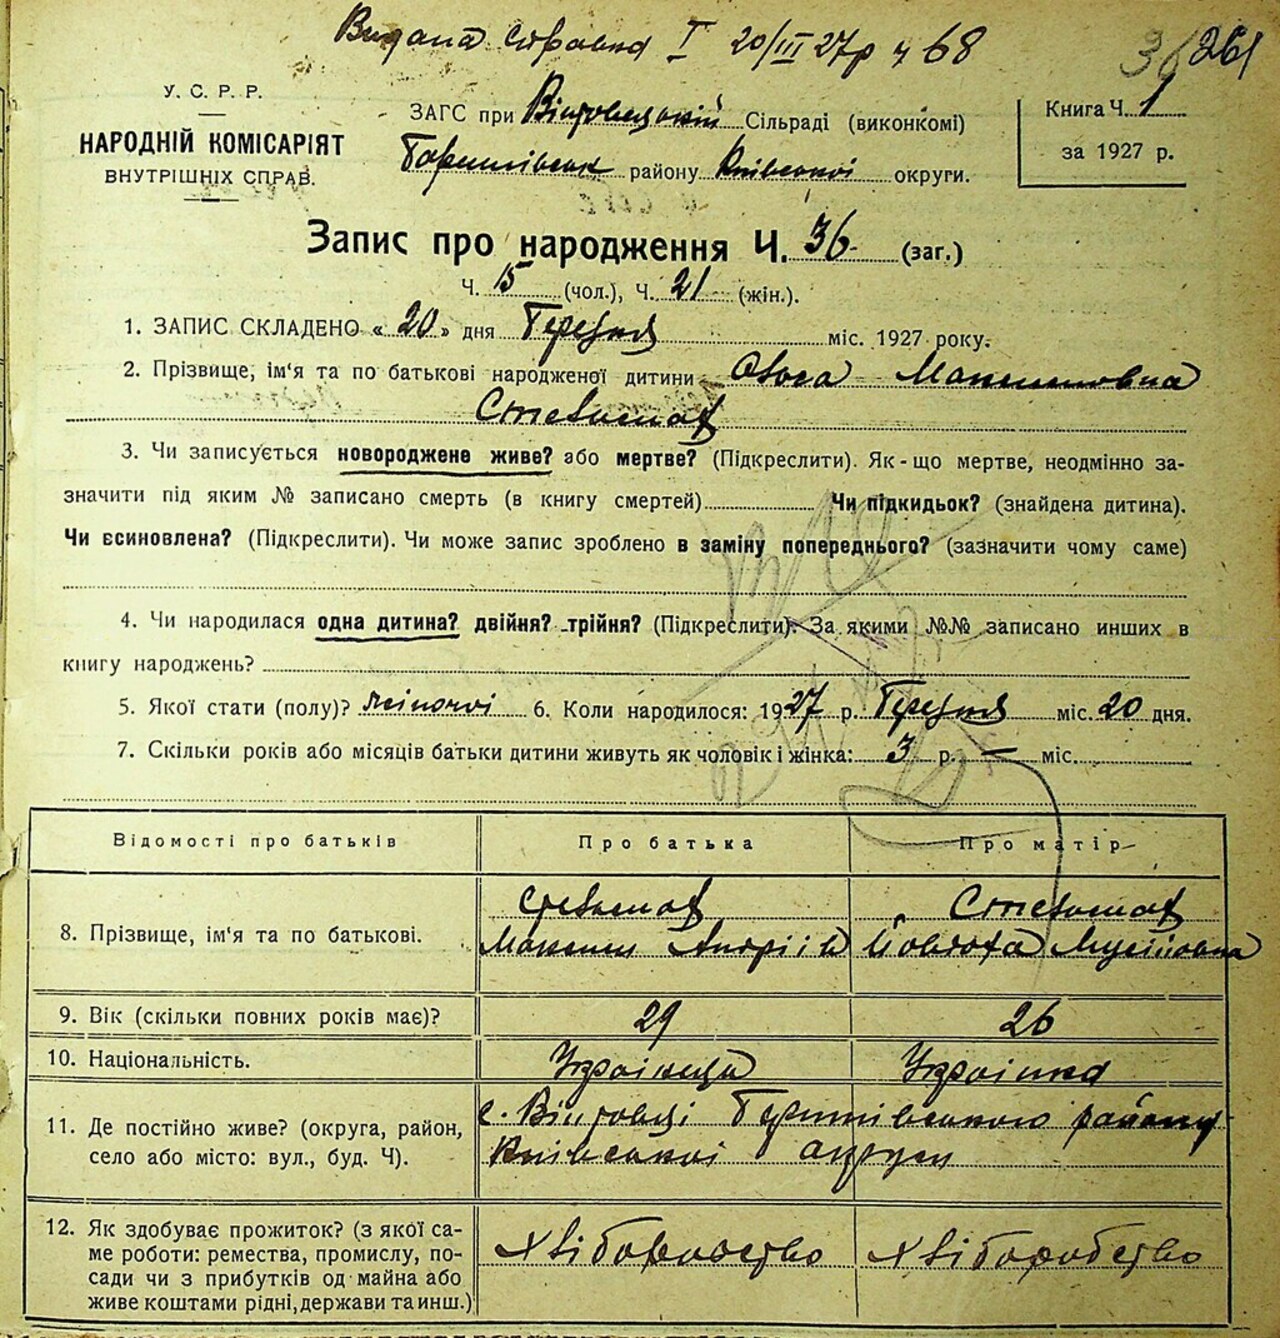 Видана справка І 20/III 27р ч 68
261
У. С. Р. Р.
НАРОДНІЙ КОМІСАРІЯТ
ВНУТРІШНІХ СПРАВ.
ЗАГС при Сільраді (виконкомі)
району Київської округи.
Книга Ч. 1
за 1927 р.
Запис про народження Ч. 36 (заг.)
Ч. 15 (чол.), Ч. 21 (жін.).
1. ЗАПИС СКЛАДЕНО «20» дня Березня міс. 1927 року.
2. Прізвище, ім'я та по батькові народженої дитини Максимовна
3. Чи записується новороджене живе? або мертве? (Підкреслити). Як-що мертве, неодмінно за-
значити під яким № записано смерть (в книгу смертей) Чи підкидьок? (знайдена дитина).
Чи єсиновлена? (Підкреслити). Чи може запис зроблено в заміну попереднього? (зазначити чому саме)
4. Чи народилася одна дитина? двійня? трійня? (Підкреслити). За якими №№ записано инших в
книгу народжень?
5. Якої стати (полу)? жіночої 6. Коли народилося: 1927 р. Березня міс. 20 дня.
7. Скільки років або місяців батьки дитини живуть як чоловік і жінка: 3 р. — міс.
Відомості про батьків Про батька Про матір
8. Прізвище, ім'я та по батькові.
Максим Андріїв Мусіївна
9. Вік (скільки повних років має)? 29 26
10. Національність. Українець Українка
11. Де постійно живе? (округа, район,
село або місто: вул., буд. Ч).
с. району
Київської округи
12. Як здобуває прожиток? (з якої са-
ме роботи: ремества, промислу, по-
сади чи з прибутків од майна або
живе коштами рідні, держави та инш.)
Хліборобство Хліборобство